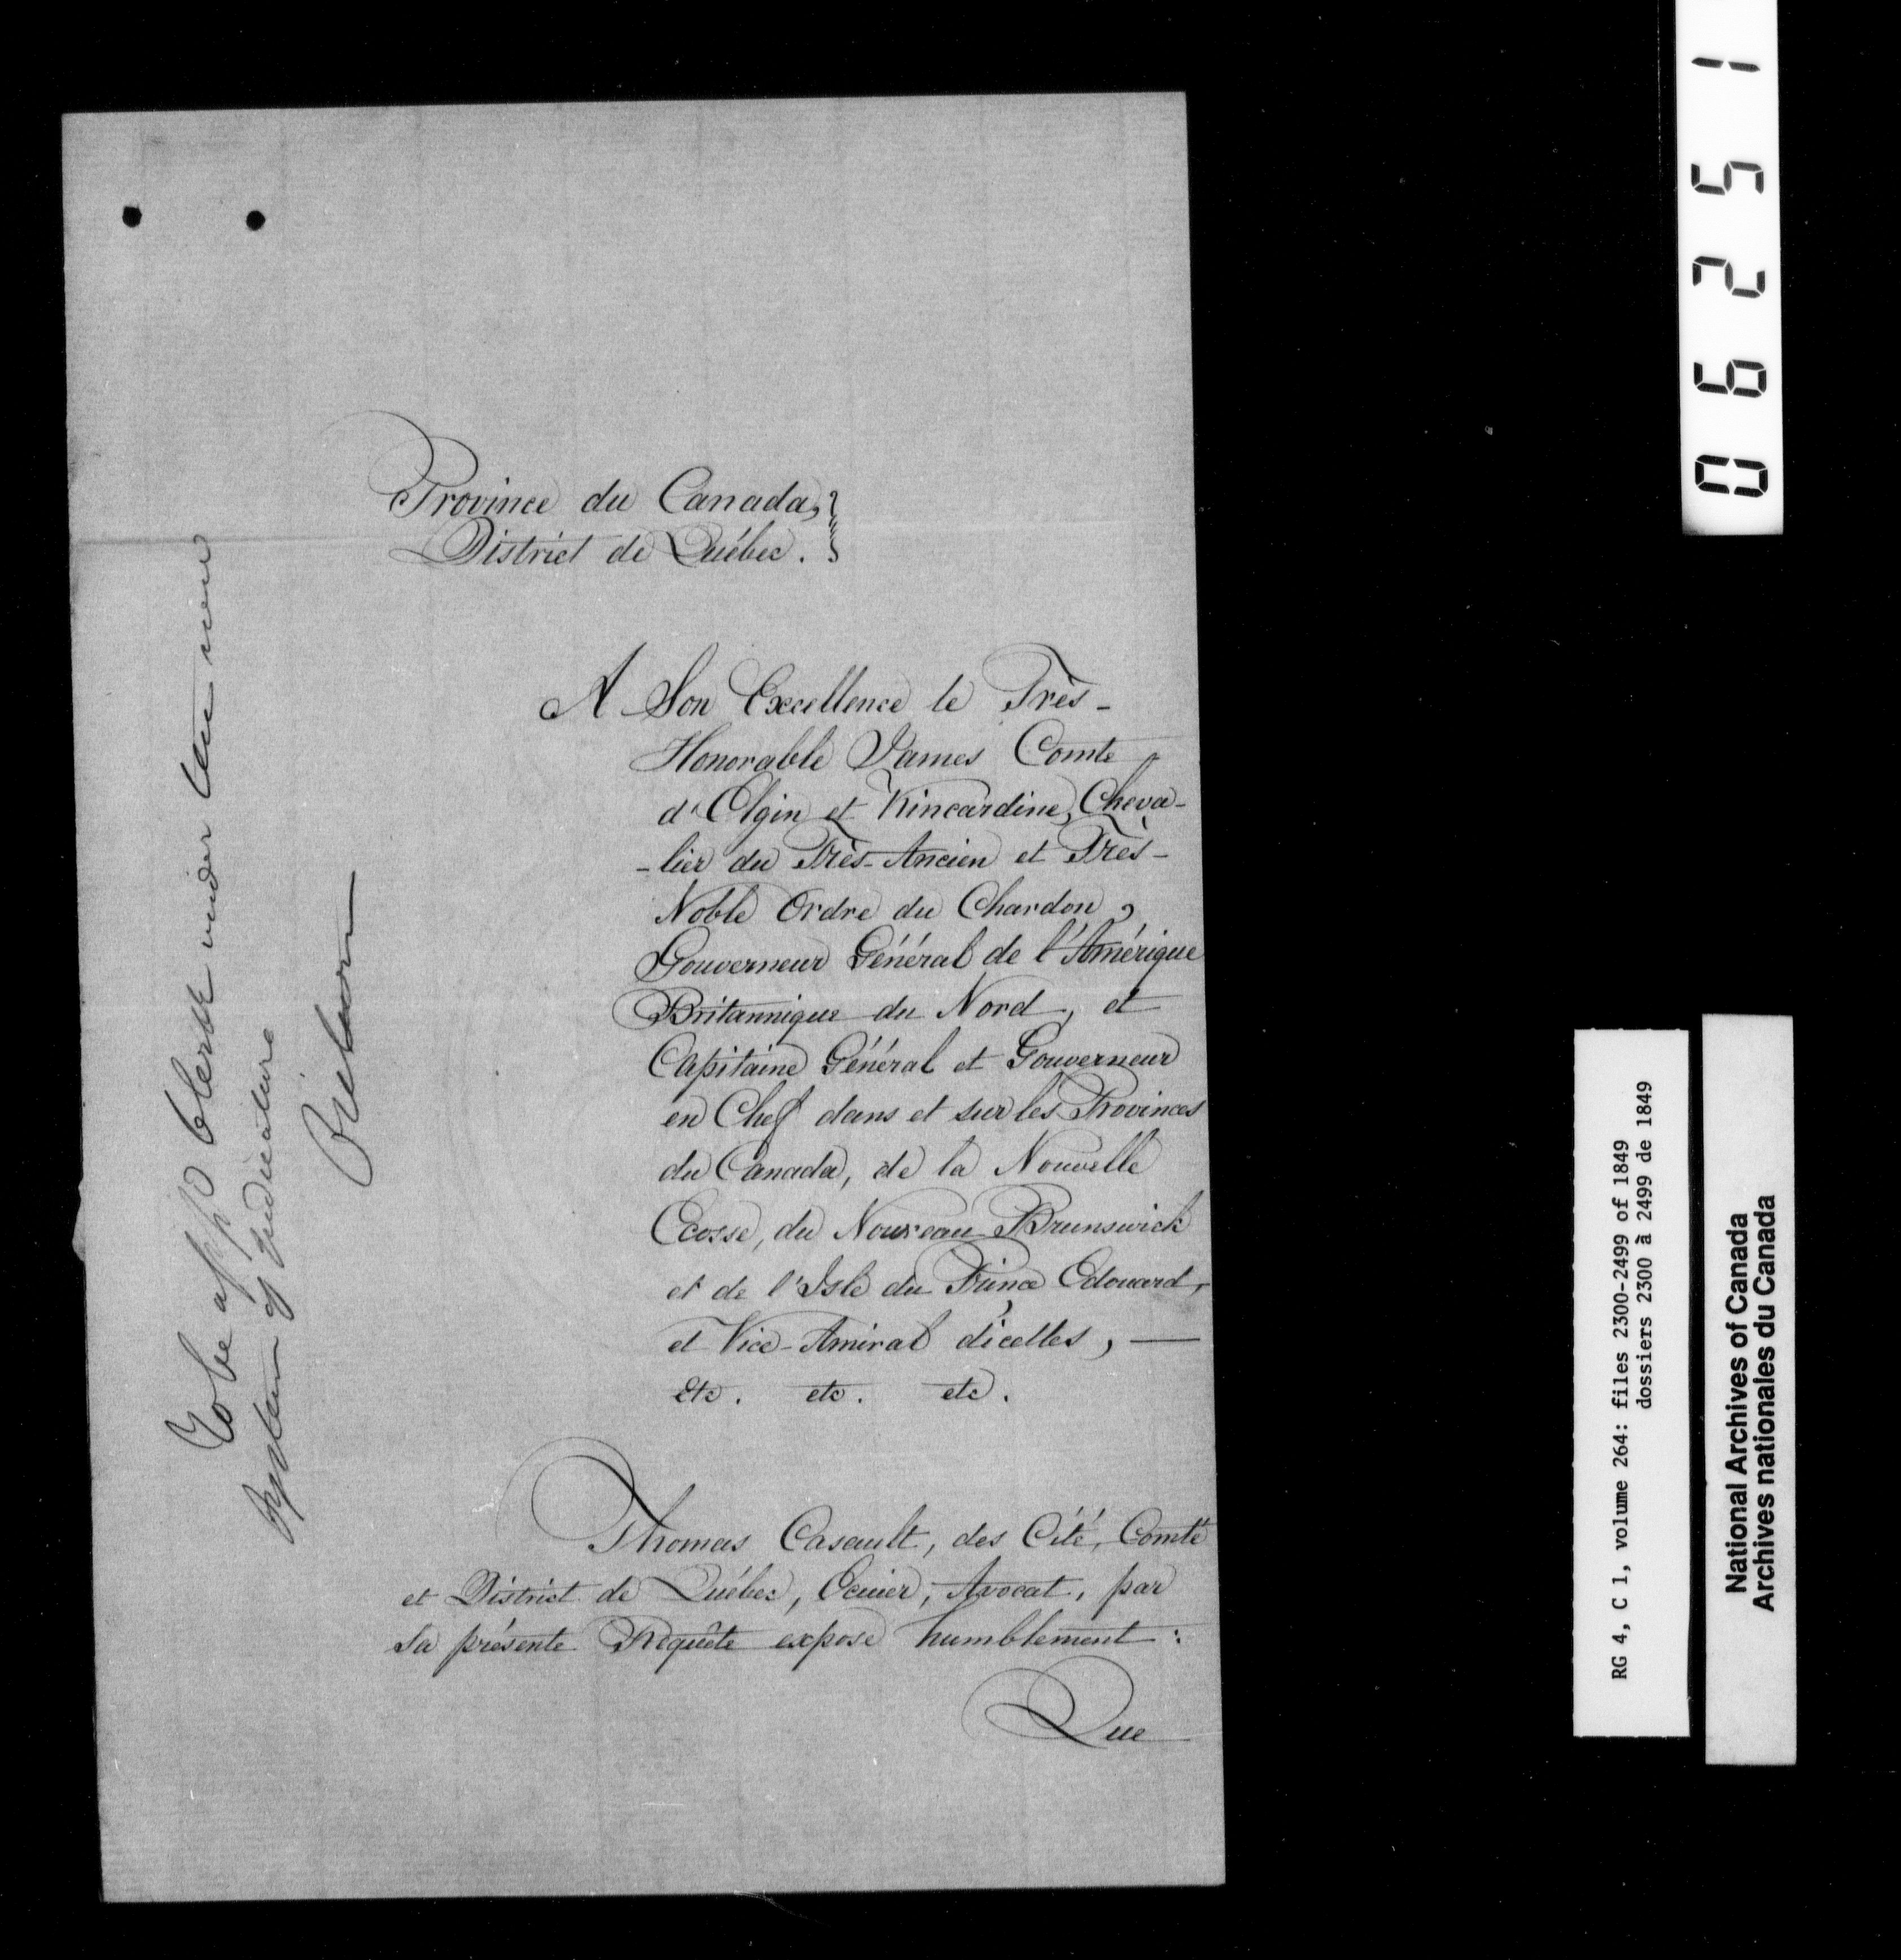 Province du Canada,
District de Québec.
A Son Excellence le Très-
Honorable James Comte
d'Elgin et Kincardine, Cheva-
-lier du Très-Ancien et Très-
Noble Ordre du Chardon,
Gouverneur Général de l'Amérique
Britannique du Nord, et
Capitaine Général et Gouverneur
en Chef dans et sur les Provinces
du Canada, de la Nouvelle
Ecosse, du Nouveau Brunswick
et de l'Isle du Prince Edouard,
et Vice-Amiral d'icelles, —
etc. etc. etc.
Thomas Casault, des Cité, Comté
et District de Québec, Ecuier, Avocat, par
Sa présente Requête expose humblement :
Que
To be appd Clerk under the new
system of Judicature
06251
RG 4, C 1, volume 264: files 2300-2499 of 1849
dossiers 2300 à 2499 de 1849
National Archives of Canada
Archives nationales du Canada